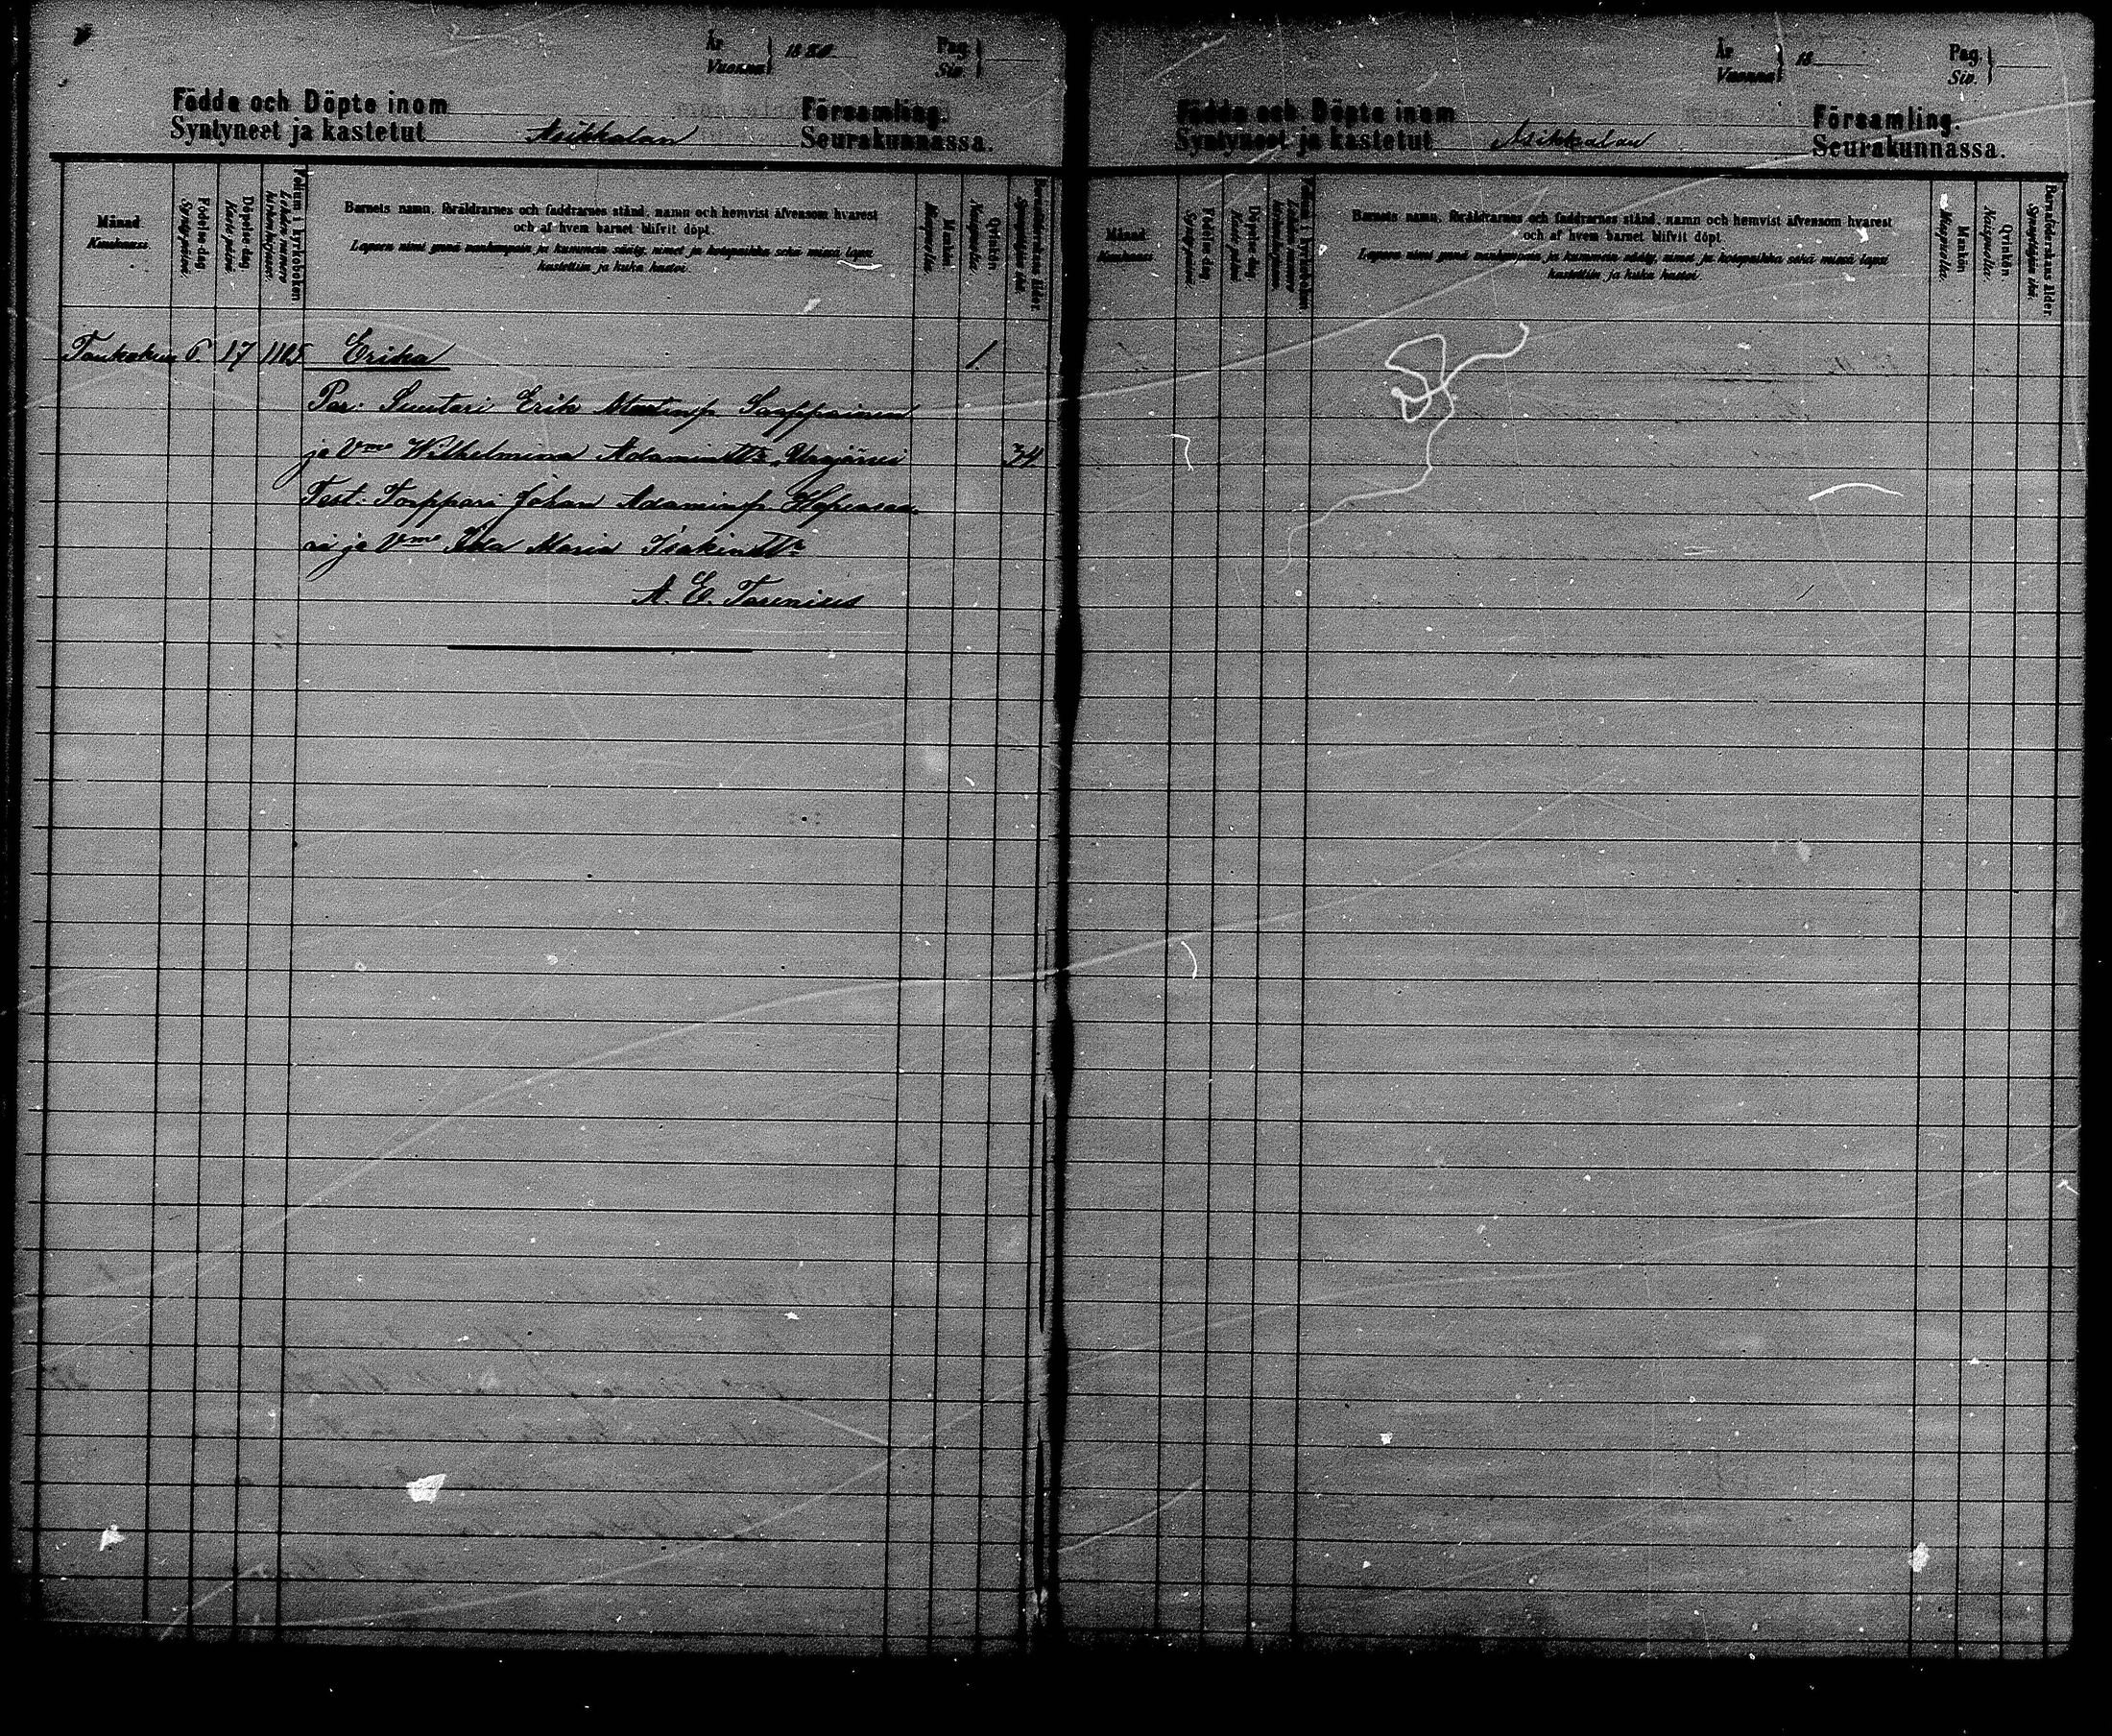 År
Vuonna } 1880.
Pag.
Siv. }
Födde och Döpte inom Församling.
Syntyneet ja kastetut Asikkalan Seurakunnassa.
Månad. Kuukausi.
Födelse-dag. Syntypäivä.
Döpelse-dag. Kastepäivä.
Folium i kyrkoboken
Lehden numero kirkonkirjassa.
Barnets namn, föräldrarnes och faddrarnes stånd, namn och hemvist äfvensom hvarest
och af hvem barnet blifvit döpt.
Lapsen nimi ynnä vanhempain ja kummein sääty, nimet ja kotopaikka sekä missä lapsi
kastettiin ja kuka kastoi.
Mankön. Miespuolia.
Qvinkön. Naispuolia.
Barnaföderskans ålder.
Synnyttäjän ikä.
Toukokuu 6. 17 1105 Erika 1.
Par: Suutari Erik Matinp. Saxppainen
ja Vmo Wilhelmina Adamintr. Urajärvi 34.
Test: Torppari Johan Adaminp. Hopeasaa
ri ja Vmo Ida Maria Isakintr
A. E. Törenius
År
Vuonna } 18
Pag.
Siv. }
Födde och Döpte inom Församling.
Syntyneet ja kastetut Asikkalan Seurakunnassa.
Månad. Kuukausi.
Födelse-dag. Syntypäivä.
Döpelse-dag. Kastepäivä.
Folium i kyrkoboken
Lehden numero kirkonkirjassa.
Barnets namn, föräldrarnes och faddrarnes stånd, namn och hemvist äfvensom hvarest
och af hvem barnet blifvit döpt.
Lapsen nimi ynnä vanhempain ja kummein sääty, nimet ja kotopaikka sekä missä lapsi
kastettiin ja kuka kastoi.
Mankön. Miespuolia.
Qvinkön. Naispuolia.
Barnaföderskans ålder.
Synnyttäjän ikä.